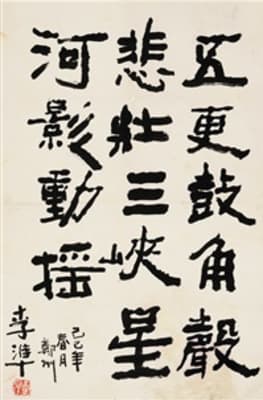 五更鼓角聲
悲壯三峽星
河影動搖
己巳年
春月
鄭州
李準